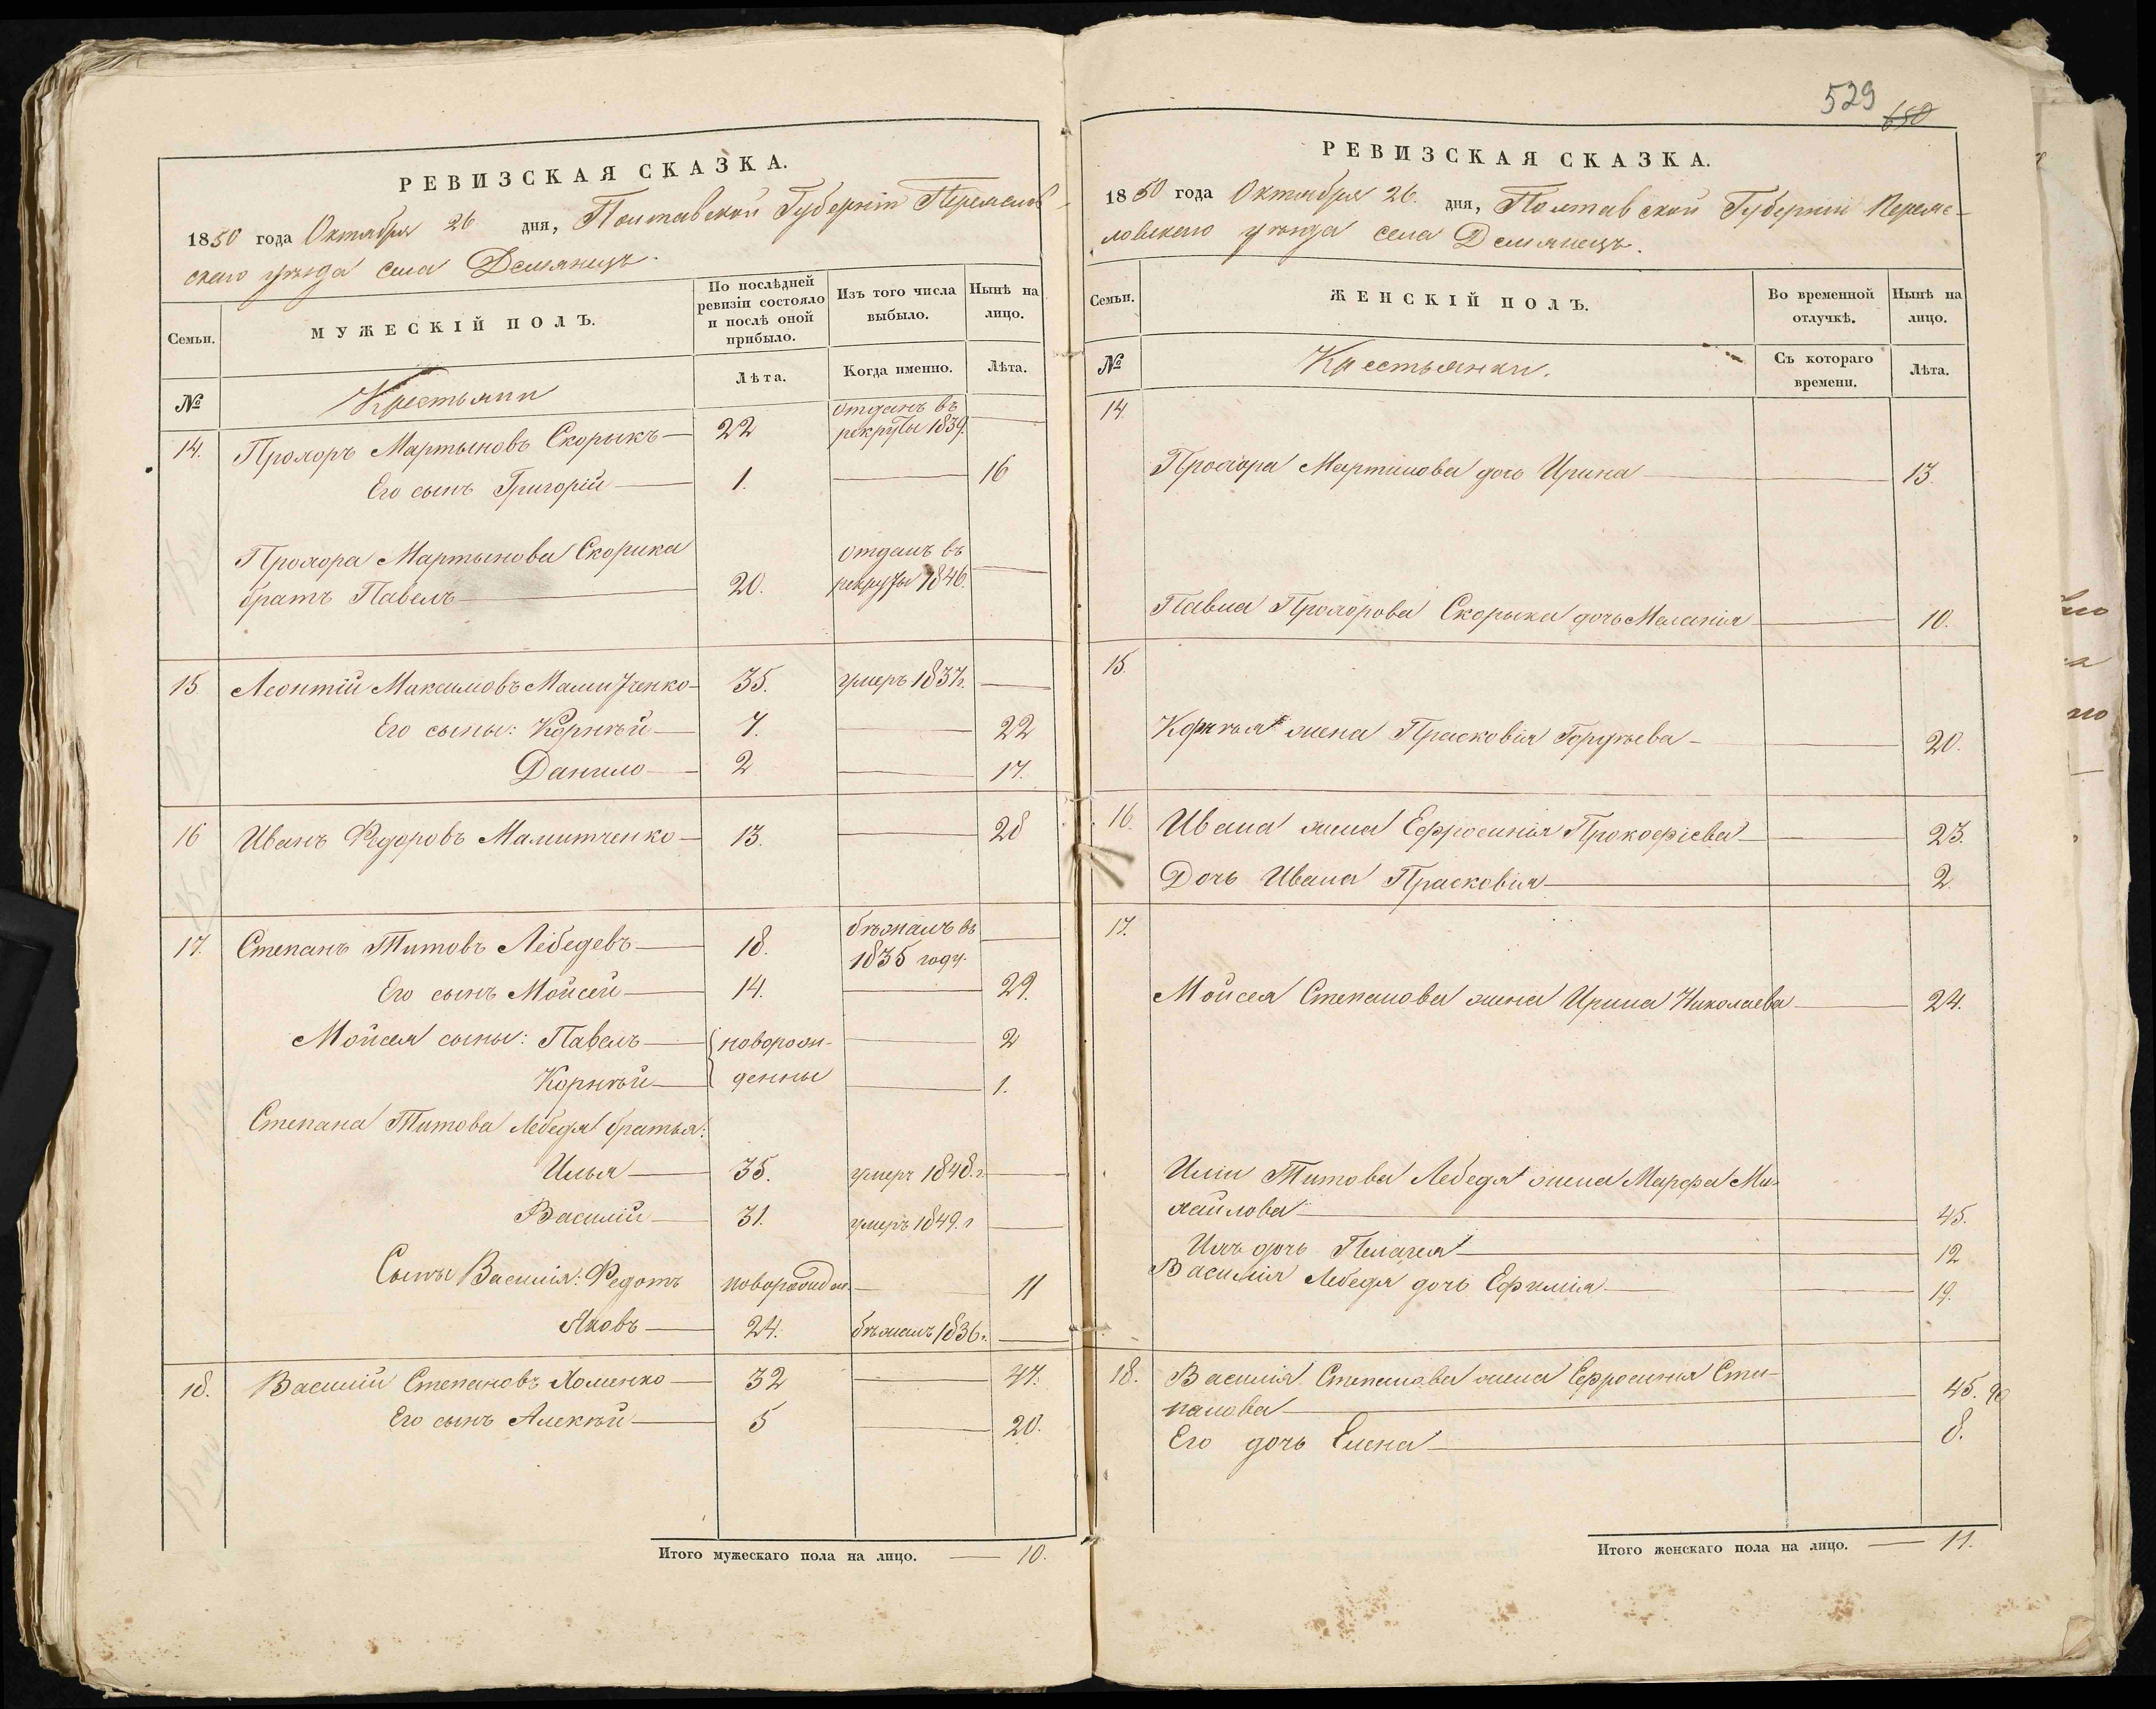 РЕВИЗСКАЯ СКАЗКА.
1850 года Октября 26 дня, Полтавской Губерніи Переяслов-
скаго уѣзда села Демянецъ.
Семьи.
МУЖЕСКІЙ ПОЛЪ.
По послѣдней ревизіи состояло и послѣ оной прибыло.
Изъ того числа выбыло.
Нынѣ на лицо.
№
Крестьяни
Лѣта.
Когда именно.
Лѣта.
14. Прохоръ Мартыновъ Скорыкъ — 22 отданъ въ рекруты 1839. —
Его сынъ Григорій — 1. — 16
Прохора Мартынова Скорика
братъ Павелъ — 20. отданъ въ рекруты 1846. —
15 Леонтій Максимовъ Мамитченко — 35. умеръ 1837г. —
Его сыны: Корнѣй — 7. — 22
Данило — 2 — 17.
16 Иванъ Федоровъ Мамитченко — 13. — 28
17. Степанъ Титовъ Лебедевъ — 18. бѣжалъ въ 1835 году. —
Его сынъ Мойсей — 14. — 29.
Мойсея сыны: Павелъ — новорож- — 2
Корнѣй — денны — 1.
Степана Титова Лебедя братья:
Илья — 35. умеръ 1848.г. —
Василій — 31. умеръ 1849.г —
Сыны Василія: Федотъ новорожден. — 11
Яковъ — 24. бѣжалъ 1836г. —
18. Василій Степановъ Хоменко — 32 — 47.
Его сынъ Алексѣй — 5 — 20.
Итого мужескаго пола на лицо. — 10.
529
650
РЕВИЗСКАЯ СКАЗКА.
1850 года Октября 26. дня, Полтавской Губерніи Переяс-
ловскаго уѣзда села Демянецъ.
Семьи.
ЖЕНСКІЙ ПОЛЪ.
Во временной отлучкѣ.
Нынѣ на лицо.
№
Крестьянки.
Съ котораго времени.
Лѣта.
14
Прохора Мартинова дочь Ирина — 13.
Павла Прохорова Скорыка дочь Меланія — 10.
15.
Корнѣя жена Прасковія Гордѣева — 20.
16. Ивана жена Ефросинья Прокофіева — 23.
Дочь Ивана Прасковія — 2.
17.
Мойсея Степанова жена Ирина Николаева — 24.
Иліи Титова Лебедя жена Марфа Ми-
хайлова — 45.
Ихъ дочь Пелагея — 12
Василія Лебедя дочь Ефимія — 19.
18. Василія Степанова жена Ефросинья Сте-
панова — 45.
Его дочь Елена — 8.
Итого женскаго пола на лицо. — 11.